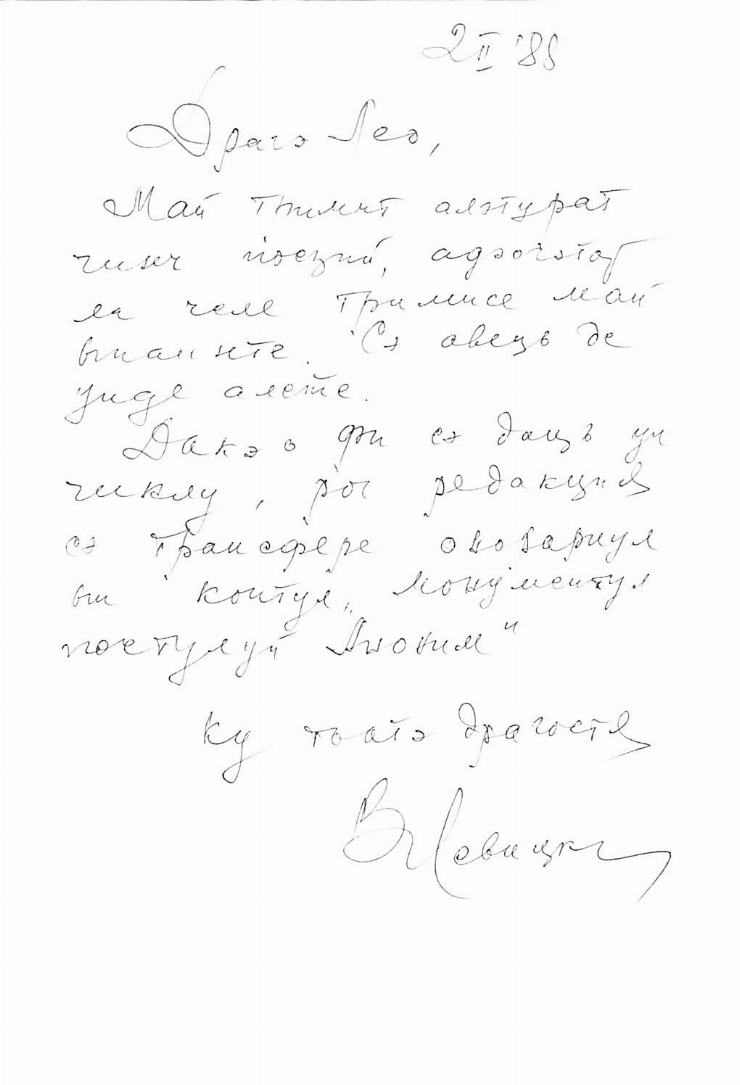 2 II '88
Драгэ Лео,
Май тримит алэтурат
чинч поезий, адэогэтор
ла челе тримисе май
ынаинте. Сэ авець де
унде алеӂе.
Дакэ о фи сэ даць ун
чиклу, рог редакция
сэ трансфере оновариул
ын контул „Монументул
поетулуй Аноним"
Ку тоатэ драгостя
В Левицки